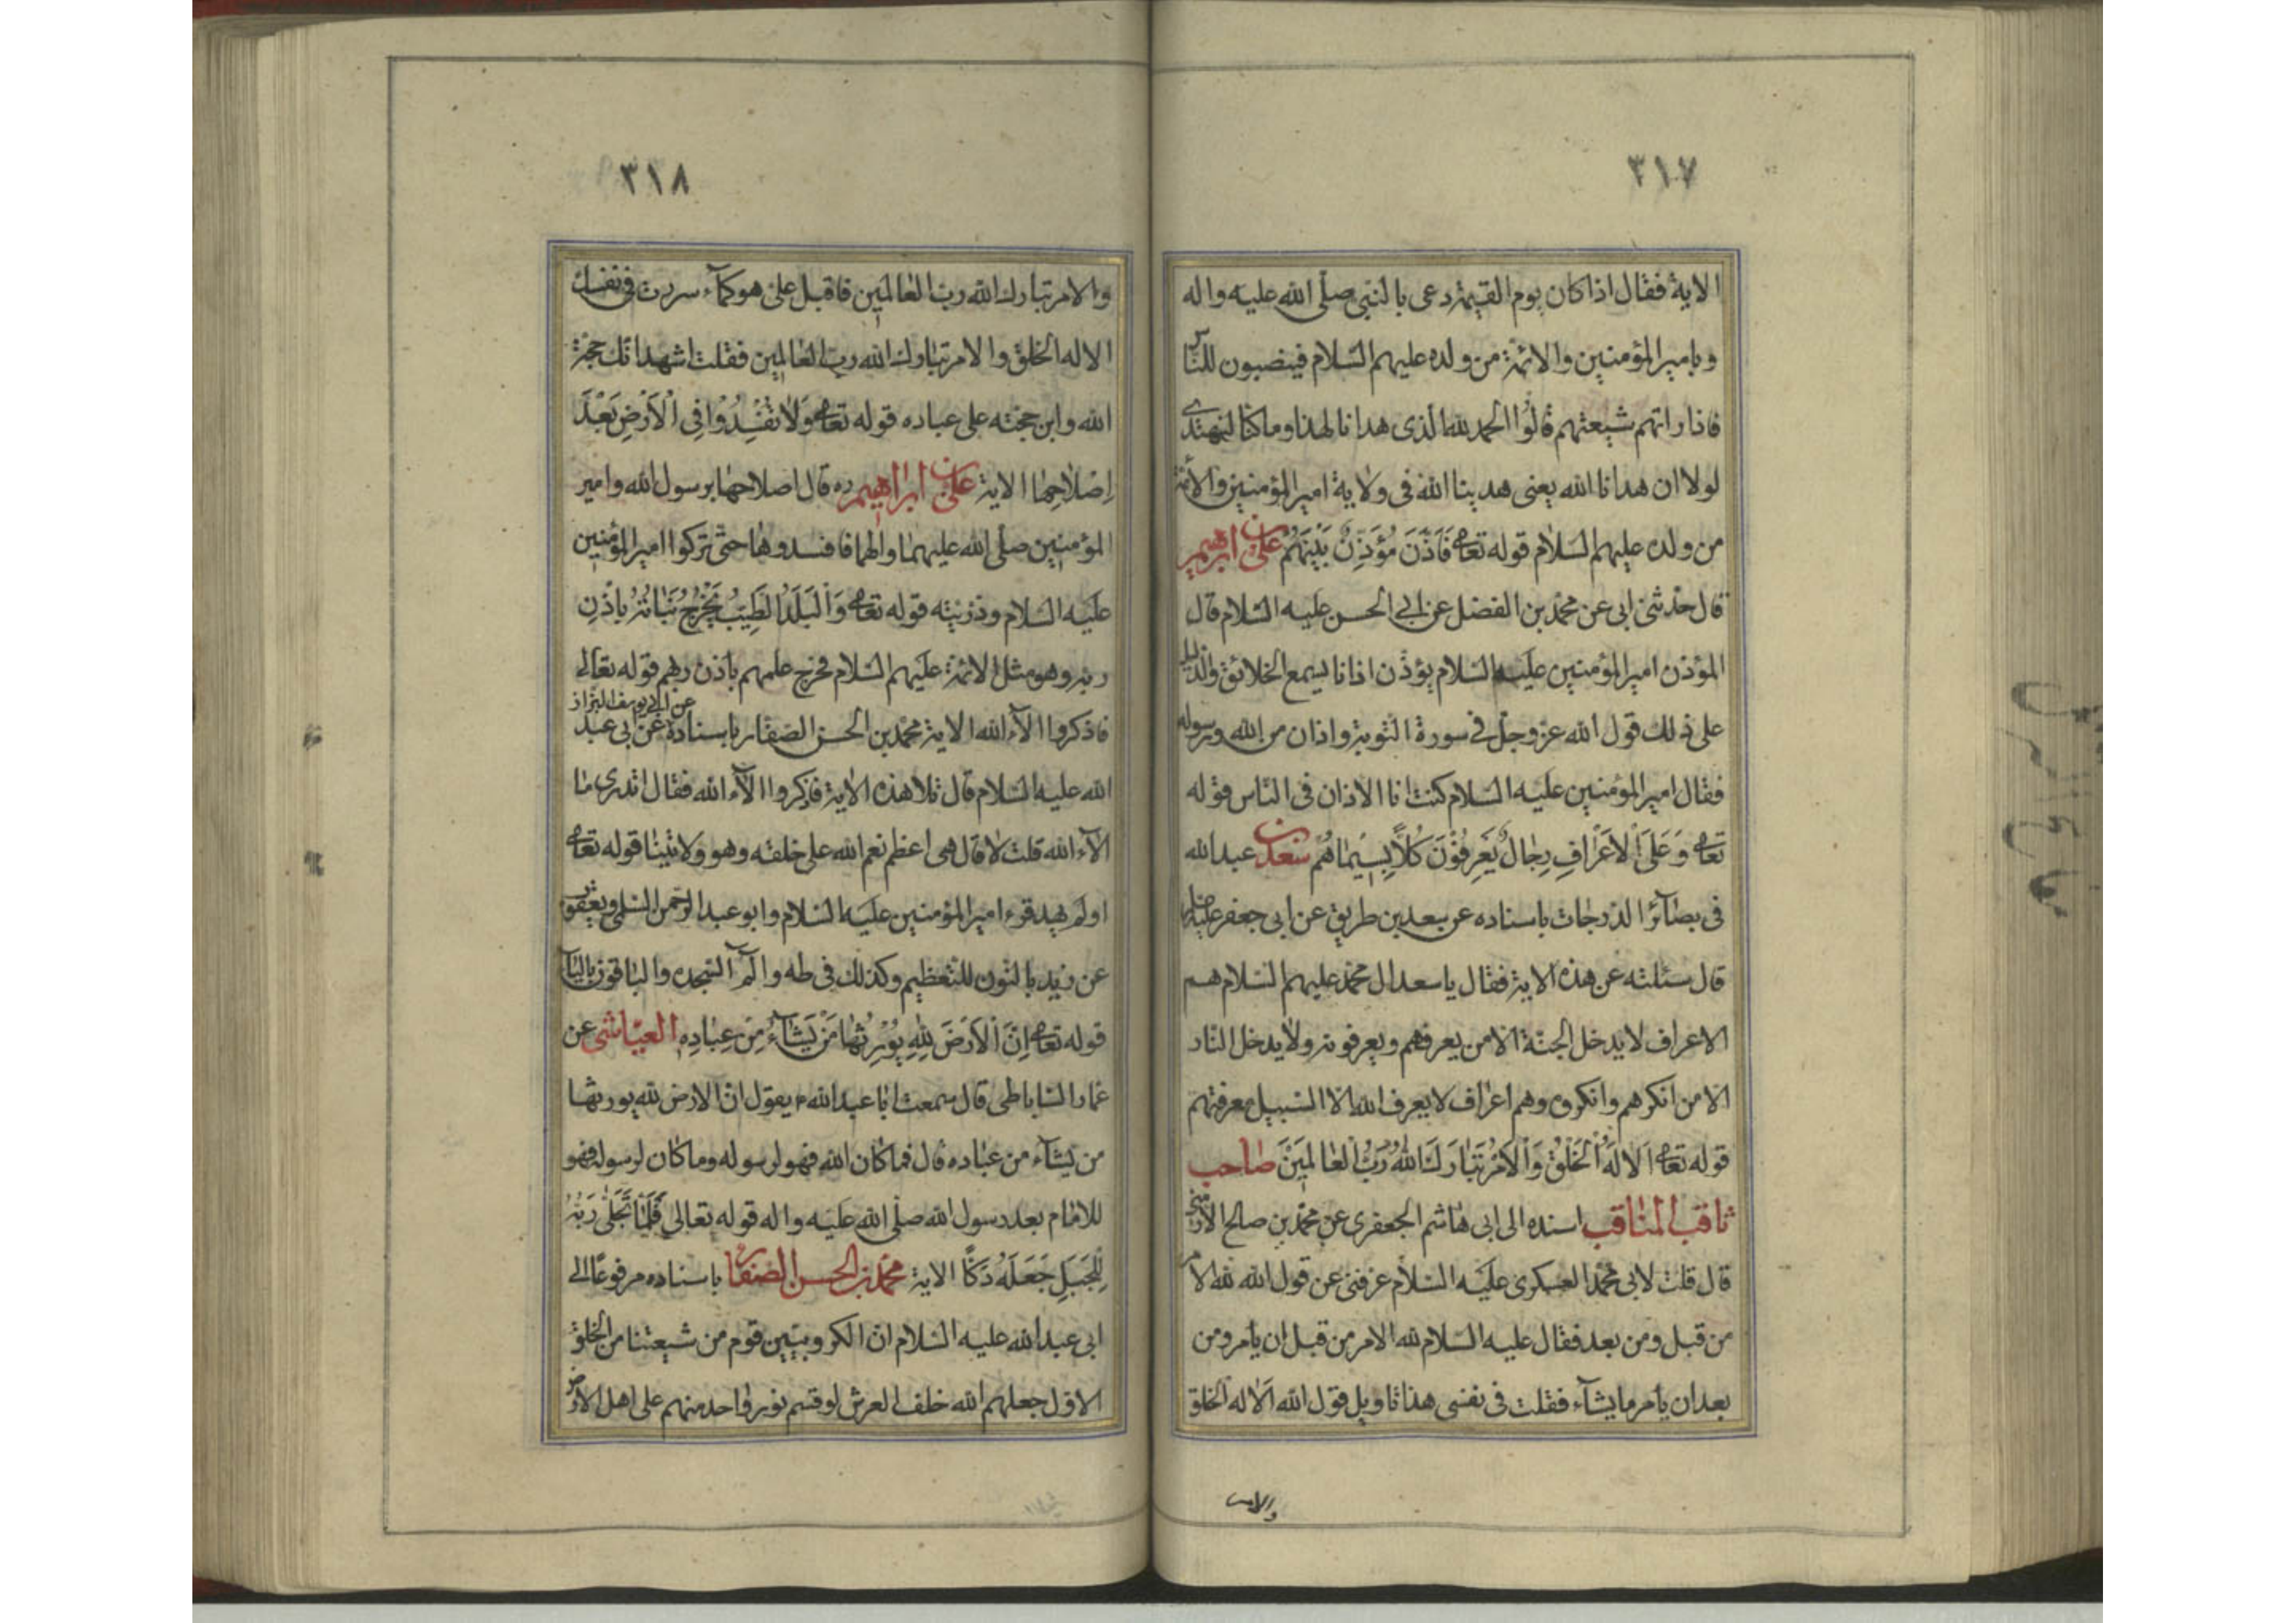 ٣١٧
الاية فقال اذا كان يوم القيمة دعى بالنبى صلّى الله عليه واله
وبامير المؤمنين والائمة من ولده عليهم السّلام فينصبون للنّاس
فاذا راتهم شيعتهم قالُوا الحمد لله الّذى هدانا لهذا وما كنّا لنهتدى
لولا ان هدانا الله يعنى هدينا الله فى ولاية امير المؤمنين والأئمة
من ولده عليهم السّلام قوله تعالى فَاَذَّنَ مُؤَذِّنٌ بَيْنَهُمْ علىّ بن ابرهيم
قال حدّثنى ابى عن محمّد بن الفضل عن ابى الحسن عليه السّلام قال
المؤذن امير المؤمنين عليه السّلام يؤذّن اذانا يسمع الخلائق والدّليل
على ذلك قول الله عز وجلّ فى سورة التوبة واذان من الله ورسوله
فقال امير المؤمنين عليه السّلام كنت انا الاذان فى النّاس قوله
تعالى وَعَلَى اْلاَعْرٰافِ رِجٰالٌ يَعْرِفُوْنَ كُلاًّ بِسيٖمٰاهُمْ سعد بن عبدالله
فى بصٰآئر الدّرجٰات باسناده عن سعد بن طريق عن ابى جعفر عليه السلام
قال سئلته عن هذه الاية فقال يا سعد ال محمّد عليهم السّلام هم
الاعراف لا يدخل الجنّة الّا من يعرفهم ويعرفونه ولا يدخل النّار
الّا من انكرهم وانكروه وهم اعراف لا يعرف الله الّا السّبيل بمعرفتهم
قوله تعالى اَلاٰ لَهُ الْخَلْقُ وَاْلاَمْرُ تَبٰارَكَ اللهُ رَبُّ الْعٰالَمِينَ صٰاحب
ثاقب المنٰاقب اسنده الى ابى هٰاشم الجعفرى عن محمّد بن صالح الارمنى
قال قلت لابى محمّد العسكرى عليه السّلام عرّفنى عن قول الله لله الامر
من قبل ومن بعد فقال عليه السّلام لله الامر من قبل ان يأمر ومن
بعد ان يأمر ما يشآء فقلت فى نفسى هذا تاويل قول الله اَلاٰ له الخلق
والامر
٣١٨
والامر تبارك الله ربّ العٰالمين فاقبل علىّ هو كمآء سررت فى نفسك
الا له الخلق والامر تبارك الله ربّ العٰالمين فقلت اشهد انّك حجّة
الله وابن حجّته على عباده قوله تعالى وَلاٰ تُفْسِدُوْا فِى اْلاَرْضِ بَعْدَ
اِصْلاٰحِهٰا الاية علىّ بن ابراهيم ره قال اصلاحهٰا برسول الله وامير
المؤمنين صلّى الله عليهمٰا والهما فافسدوهٰا حتّى تركوا امير المؤمنين
عليه السّلام وذرّيته قوله تعالى وَالْبَلَدُ الطَّيِّبُ يَخْرُجُ نَبٰاتُهُ بِاِذْنِ
ربّه وهو مثل الائمّة عليهم السّلام مخرج علمهم باذن ربهم قوله تعالى
فاذكروا الآء الله الاية محمّد بن الحسن الصّفّار باسناده عن ابى يوسف البزاز عن ابى عبد
الله عليه السّلام قال تلا هذه الاية فاذكروا الآء الله فقال اتدرى مٰا
الآء الله قلت لا قال هى اعظم نعم الله على خلقه وهو ولايتنٰا قوله تعالى
اولم يهد قرء امير المؤمنين عليه السّلام وابو عبد الرّحمن السّلمى ويعقوب
عن زيد بالنّون للتعظيم وكذلك فى طه والم السّجده والبٰاقون باليآء
قوله تعالى اِنَّ اْلاَرْضَ لِلّٰهِ يُوْرِثُهٰا مَنْ يَشٰآءُ مِنْ عِبٰادِهٖ العيّاشى عن
عمّار السّاباطى قال سمعت ابٰا عبد الله ع يقول انّ الارض لله يورثهٰا
من يَشٰآء من عبٰاده قال فمٰا كٰان الله فهو لرسوله ومٰا كٰان لرسوله فهو
للامٰام بعد رسول الله صلّى الله عليه واله قوله تعالى فَلَمّٰا تَجَلّٰى رَبُّهُ
لِلْجَبَلِ جَعَلَهُ دَكًّا الاية محمّد بن الحسن الصّفّار باسناده مرفوعًا الى
ابى عبد الله عليه السّلام انّ الكروبيّين قوم من شيعتنا من الخلق
الاوّل جعلهم الله خلف العرش لو قسم نور واحد منهم على اهل الارض